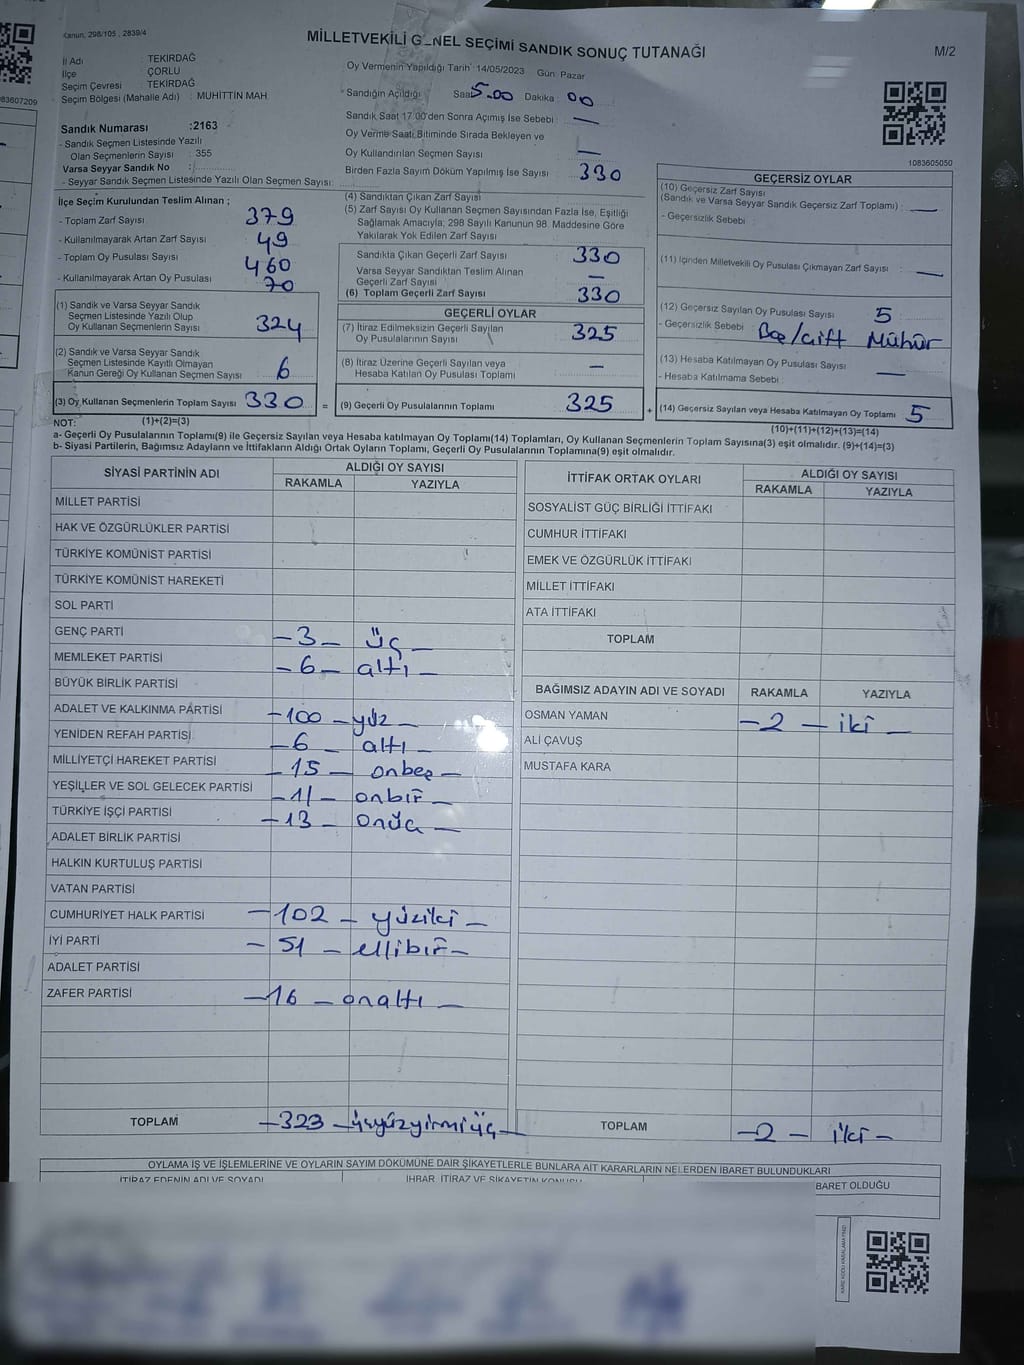 Kanun, 298/105 , 2839/4
MİLLETVEKİLİ G_NEL SEÇİMİ SANDIK SONUÇ TUTANAĞI
M/2
İl Adı : TEKİRDAĞ
İlçe ÇORLU
Seçim Çevresi TEKİRDAĞ
Seçim Bölgesi (Mahalle Adı) : MUHİTTİN MAH.
83607209
Oy Vermenin Yapıldığı Tarih : 14/05/2023 Gün: Pazar
Sandığın Açıldığı Saat 5.00 Dakika 00
Sandık Saat 17.00'den Sonra Açımış İse Sebebi : —
Oy Verme Saati Bitiminde Sırada Bekleyen ve
Oy Kullandırılan Seçmen Sayısı —
Birden Fazla Sayım Döküm Yapılmış İse Sayısı : 330
1083605050
Sandık Numarası :2163
- Sandık Seçmen Listesinde Yazılı
Olan Seçmenlerin Sayısı : 355
Varsa Seyyar Sandık No :
- Seyyar Sandık Seçmen Listesinde Yazılı Olan Seçmen Sayısı:
İlçe Seçim Kurulundan Teslim Alınan ;
- Toplam Zarf Sayısı 379
- Kullanılmayarak Artan Zarf Sayısı 49
- Toplam Oy Pusulası Sayısı 460
- Kullanılmayarak Artan Oy Pusulası 70
(1) Sandık ve Varsa Seyyar Sandık
Seçmen Listesinde Yazılı Olup
Oy Kullanan Seçmenlerin Sayısı 324
(2) Sandık ve Varsa Seyyar Sandık
Seçmen Listesinde Kayıtlı Olmayan
Kanun Gereği Oy Kullanan Seçmen Sayısı 6
(3) Oy Kullanan Seçmenlerin Toplam Sayısı 330 =
(4) Sandıktan Çıkan Zarf Sayısı
(5) Zarf Sayısı Oy Kullanan Seçmen Sayısından Fazla İse, Eşitliği
Sağlamak Amacıyla; 298 Sayılı Kanunun 98. Maddesine Göre
Yakılarak Yok Edilen Zarf Sayısı
Sandıkta Çıkan Geçerli Zarf Sayısı 330
Varsa Seyyar Sandıktan Teslim Alınan
Geçerli Zarf Sayısı —
(6) Toplam Geçerli Zarf Sayısı 330
GEÇERLİ OYLAR
(7) İtiraz Edilmeksizin Geçerli Sayılan
Oy Pusulalarının Sayısı 325
(8) İtiraz Üzerine Geçerli Sayılan veya
Hesaba Katılan Oy Pusulası Toplamı —
(9) Geçerli Oy Pusulalarının Toplamı 325 +
GEÇERSİZ OYLAR
(10) Geçersiz Zarf Sayısı
(Sandık ve Varsa Seyyar Sandık Geçersiz Zarf Toplamı) : —
- Geçersizlik Sebebi :
(11) İçinden Milletvekili Oy Pusulası Çıkmayan Zarf Sayısı : —
(12) Geçersiz Sayılan Oy Pusulası Sayısı 5
- Geçersizlik Sebebi : Boş/Çift Mühür
(13) Hesaba Katılmayan Oy Pusulası Sayısı : —
- Hesaba Katılmama Sebebi :
(14) Geçersiz Sayılan veya Hesaba Katılmayan Oy Toplamı 5
NOT: (1)+(2)=(3)
(10)+(11)+(12)+(13)=(14)
a- Geçerli Oy Pusulalarının Toplamı(9) ile Geçersiz Sayılan veya Hesaba katılmayan Oy Toplamı(14) Toplamları, Oy Kullanan Seçmenlerin Toplam Sayısına(3) eşit olmalıdır. (9)+(14)=(3)
b- Siyasi Partilerin, Bağımsız Adayların ve İttifakların Aldığı Ortak Oyların Toplamı, Geçerli Oy Pusulalarının Toplamına(9) eşit olmalıdır.
SİYASİ PARTİNİN ADI ALDIĞI OY SAYISI
RAKAMLA YAZIYLA
MİLLET PARTİSİ
HAK VE ÖZGÜRLÜKLER PARTİSİ
TÜRKİYE KOMÜNİST PARTİSİ
TÜRKİYE KOMÜNİST HAREKETİ
SOL PARTİ
GENÇ PARTİ –3– üç –
MEMLEKET PARTİSİ –6– altı –
BÜYÜK BİRLİK PARTİSİ
ADALET VE KALKINMA PARTİSİ –100– yüz –
YENİDEN REFAH PARTİSİ –6– altı –
MİLLİYETÇİ HAREKET PARTİSİ –15– onbeş –
YEŞİLLER VE SOL GELECEK PARTİSİ –11– onbir –
TÜRKİYE İŞÇİ PARTİSİ –13– onüç –
ADALET BİRLİK PARTİSİ
HALKIN KURTULUŞ PARTİSİ
VATAN PARTİSİ
CUMHURİYET HALK PARTİSİ –102– yüziki –
İYİ PARTİ –51– ellibir –
ADALET PARTİSİ
ZAFER PARTİSİ –16– onaltı –
TOPLAM –323– üçyüzyirmiüç –
İTTİFAK ORTAK OYLARI ALDIĞI OY SAYISI
RAKAMLA YAZIYLA
SOSYALİST GÜÇ BİRLİĞİ İTTİFAKI
CUMHUR İTTİFAKI
EMEK VE ÖZGÜRLÜK İTTİFAKI
MİLLET İTTİFAKI
ATA İTTİFAKI
TOPLAM
BAĞIMSIZ ADAYIN ADI VE SOYADI RAKAMLA YAZIYLA
OSMAN YAMAN –2– iki –
ALİ ÇAVUŞ
MUSTAFA KARA
TOPLAM –2– iki –
OYLAMA İŞ VE İŞLEMLERİNE VE OYLARIN SAYIM DÖKÜMÜNE DAİR ŞİKAYETLERLE BUNLARA AİT KARARLARIN NELERDEN İBARET BULUNDUKLARI
İTİRAZ EDENİN ADI VE SOYADI İHBAR, İTİRAZ VE ŞİKAYETİN KONUSU BARET OLDUĞU